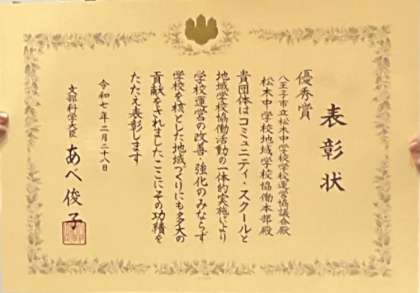 表彰状
優秀賞
八王子市立松木中学校学校運営協議会殿
松木中学校地域学校協働本部殿
貴団体はコミュニティ・スクールと
地域学校協働活動の一体的実施により
学校運営の改善・強化のみならず
学校を核とした地域づくりにも多大の
貢献をされましたここにその功績を
たたえ表彰します
令和七年二月二十八日
文部科学大臣 あべ俊子